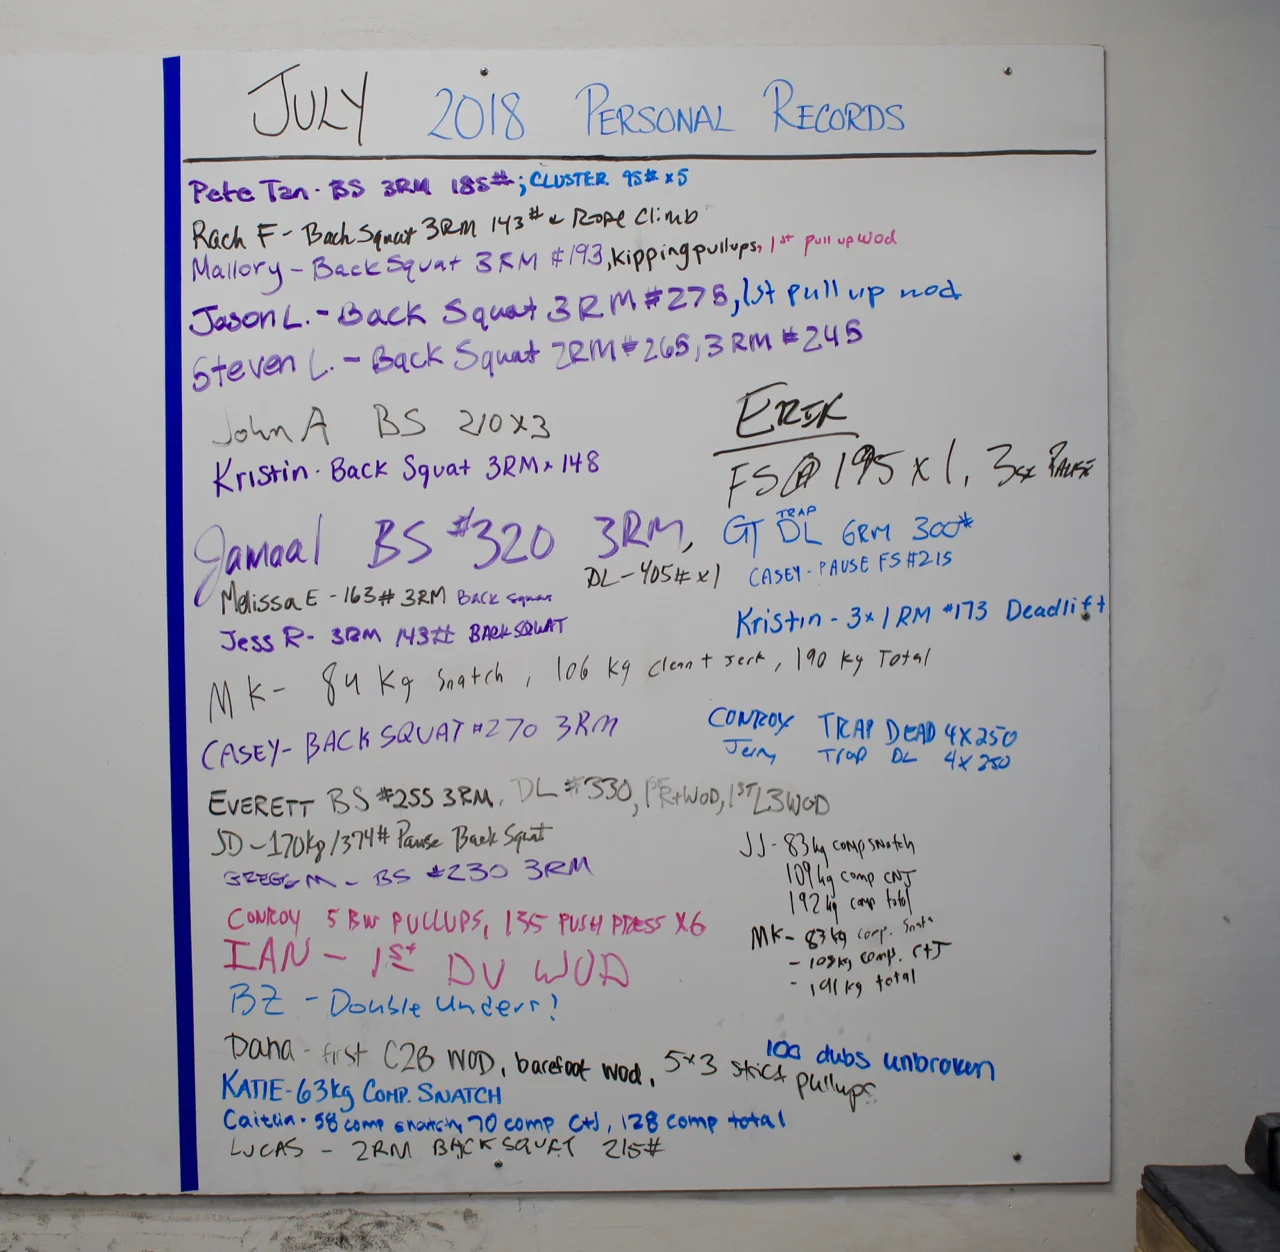 JULY 2018 PERSONAL RECORDS
Pete Tan - BS 3RM 185#; CLUSTER 95# x 5
Rach F - Back Squat 3RM 143# & Rope Climb
Mallory - Back Squat 3RM #193, kipping pullups, 1st pull up WOD
Jason L. - Back Squat 3RM #275, 1st pull up wod
Steven L. - Back Squat 2RM #265, 3RM #245
John A BS 210 x 3
Kristin - Back Squat 3RM x 148
ERIK
FS @ 195 x 1, 3sx PAUSE
Jamaal BS #320 3RM,
DL - 405# x 1
GT TRAP DL 6RM 300#
CASEY - PAUSE FS #215
Melissa E - 163# 3RM Back Squat
Jess R - 3RM 143# BACK SQUAT
Kristin - 3 x 1RM #173 Deadlift
MK - 84 Kg Snatch, 106 Kg Clean + Jerk, 190 Kg Total
CASEY - BACK SQUAT #270 3RM
CONROY TRAP DEAD 4 X 250
Jerry TRAP DL 4 X 250
EVERETT BS #255 3RM, DL #330, 1ST R+ WOD, 1ST L3 WOD
JD - 170kg/374# Pause Back Squat
GREGG M - BS #230 3RM
JJ - 83kg comp snatch
109kg comp CNJ
192kg comp total
MK - 83kg comp. Snatch
- 108kg comp. C+J
- 191kg total
CONROY 5 BW PULLUPS, 135 PUSH PRESS X6
IAN - 1st DU WOD
BZ - Double Unders!
Dana - first C2B WOD, barefoot wod, 5x3 strict pullups
100 dubs unbroken
KATIE - 63kg COMP. SNATCH
Caitlin - 58 comp snatch, 70 comp C+J, 128 comp total
LUCAS - 2RM BACK SQUAT 215#